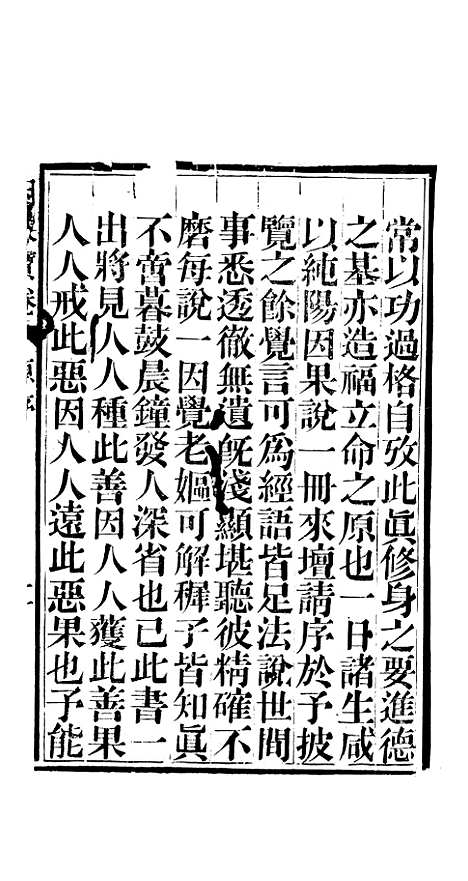 常以功過格自攷此眞修身之要進德
之基亦造福立命之原也一日諸生咸
以純陽因果說一冊來壇請序於予披
覽之餘覺言可為經語皆足法說世間
事悉透徹無遺旣淺顯堪聽彼精確不
磨每說一因覺老嫗可解穉子皆知眞
不啻暮鼓晨鐘發人深省也已此書一
出將見人人種此善因人人獲此善果
人人戒此惡因人人遠此惡果也予能